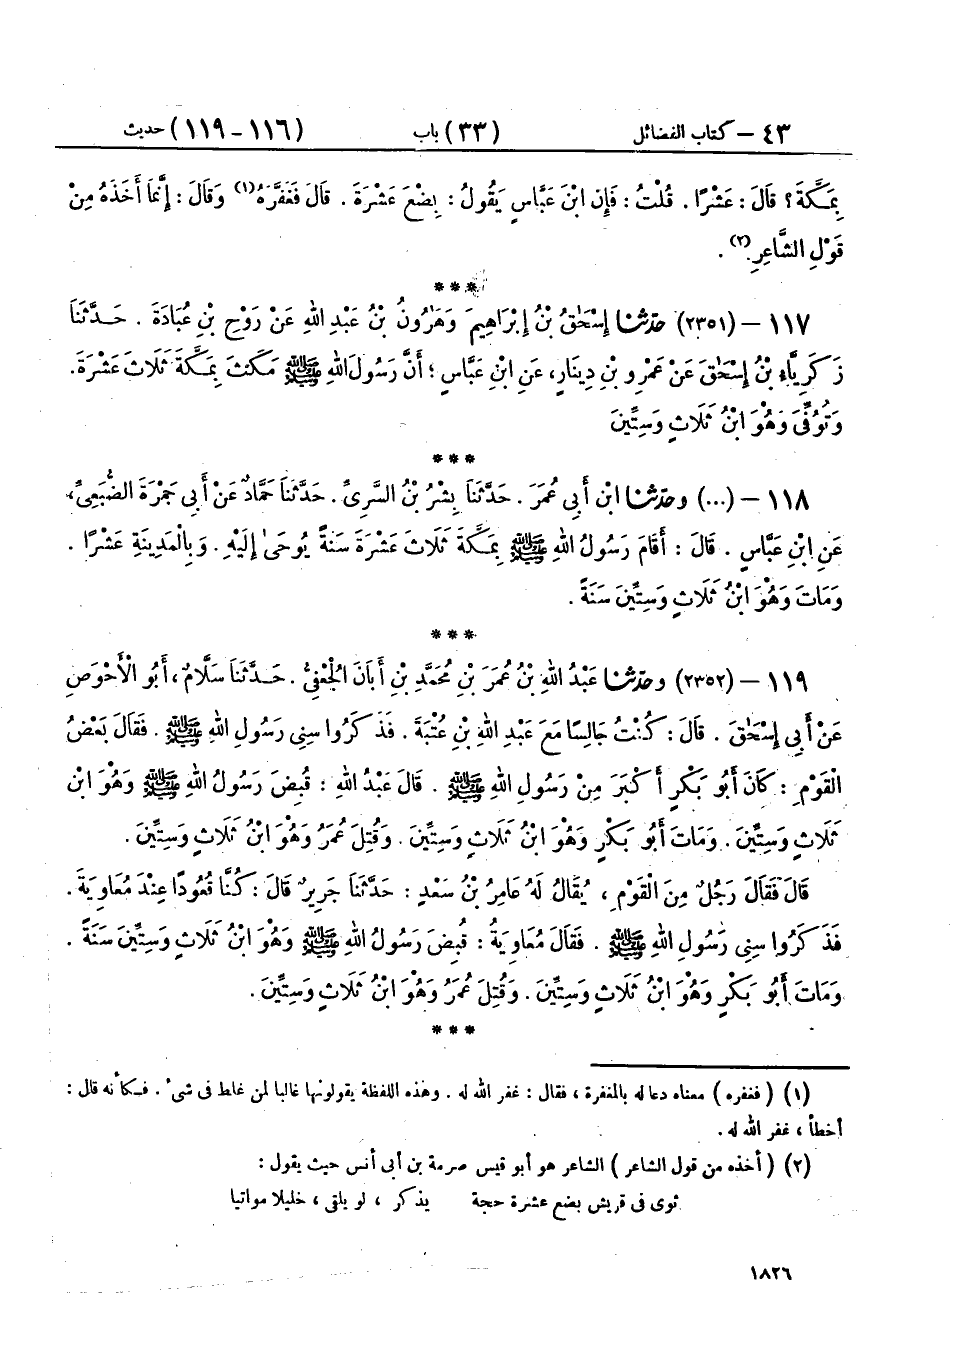 ٤٣ – كتاب الفضائل (٣٣) باب (١١٦-١١٩) حديث
بِمَكَّةَ؟ قَالَ: عَشْرًا. قُلْتُ: فَإِن ابْنَ عَبَّاسٍ يَقُولُ: بِضْعَ عَشْرَةَ. قَالَ فَغَفَّرَهُ(١) وَقَالَ: إِنَّمَا أَخَذَهُ مِنْ
قَوْلِ الشَّاعِرِ(٢).
***
١١٧ – (٢٣٥١) حَدَّثَنَا إِسْحَاقُ بْنُ إِبْرَاهِيمَ وَهَرُونُ بْنُ عَبْدِ اللهِ عَنْ رَوْحِ بْنِ عُبَادَةَ. حَدَّثَنَا
زَكَرِيَّاءِ بْنُ إِسْحَاقَ عَنْ عَمْرِو بْنِ دِينَارٍ، عَنِ ابْنِ عَبَّاسٍ؛ أَنَّ رَسُولَ اللهِ ﷺ مَكَثَ بِمَكَّةَ ثَلَاثَ عَشْرَةَ.
وَتُوُفِّيَ وَهْوَ ابْنُ ثَلَاثٍ وَسِتِّينَ
***
١١٨ – (...) وحَدَّثَنَا ابْنُ أَبِي عُمَرَ. حَدَّثَنَا بِشْرُ بْنُ السَّرِيِّ. حَدَّثَنَا حَمَّادٌ عَنْ أَبِي جَمْرَةَ الضُّبَعِيِّ،
عَنِ ابْنِ عَبَّاسٍ. قَالَ: أَقَامَ رَسُولُ اللهِ ﷺ بِمَكَّةَ ثَلَاثَ عَشْرَةَ سَنَةً يُوحَى إِلَيْهِ. وَبِالْمَدِينَةِ عَشْرًا.
وَمَاتَ وَهْوَ ابْنُ ثَلَاثٍ وَسِتِّينَ سَنَةً.
***
١١٩ – (٢٣٥٢) وحَدَّثَنَا عَبْدُ اللهِ بْنُ عُمَرَ بْنِ مُحَمَّدِ بْنِ أَبَانَ الْجُعْفِيُّ. حَدَّثَنَا سَلَّامٌ، أَبُو الْأَحْوَصِ
عَنْ أَبِي إِسْحَاقَ. قَالَ: كُنْتُ جَالِسًا مَعَ عَبْدِ اللهِ بْنِ عُتْبَةَ. فَذَكَرُوا سِنِي رَسُولِ اللهِ ﷺ. فَقَالَ بَعْضُ
الْقَوْمِ: كَانَ أَبُو بَكْرٍ أَكْبَرَ مِنْ رَسُولِ اللهِ ﷺ. قَالَ عَبْدُ اللهِ: قُبِضَ رَسُولُ اللهِ ﷺ وَهْوَ ابْنُ
ثَلَاثٍ وَسِتِّينَ. وَمَاتَ أَبُو بَكْرٍ وَهْوَ ابْنُ ثَلَاثٍ وَسِتِّينَ. وَقُتِلَ عُمَرُ وَهْوَ ابْنُ ثَلَاثٍ وَسِتِّينَ.
قَالَ فَقَالَ رَجُلٌ مِنَ الْقَوْمِ، يُقَالُ لَهُ عَامِرُ بْنُ سَعْدٍ: حَدَّثَنَا جَرِيرٌ قَالَ: كُنَّا قُعُودًا عِنْدَ مُعَاوِيَةَ.
فَذَكَرُوا سِنِي رَسُولِ اللهِ ﷺ. فَقَالَ مُعَاوِيَةُ: قُبِضَ رَسُولُ اللهِ ﷺ وَهْوَ ابْنُ ثَلَاثٍ وَسِتِّينَ سَنَةً.
وَمَاتَ أَبُو بَكْرٍ وَهْوَ ابْنُ ثَلَاثٍ وَسِتِّينَ. وَقُتِلَ عُمَرُ وَهْوَ ابْنُ ثَلَاثٍ وَسِتِّينَ.
***
(١) (فغفره) معناه دعا له بالمغفرة، فقال: غفر الله له. وهذه اللفظة يقولونها غالبا لمن غلط في شيء. فكأنه قال:
أخطأ، غفر الله له.
(٢) (أخذه من قول الشاعر) الشاعر هو أبو قيس صرمة بن أبى أنس حيث يقول:
ثوى فى قريش بضع عشرة حجة يذكر، لو يلقى، خليلا مواتيا
١٨٢٦